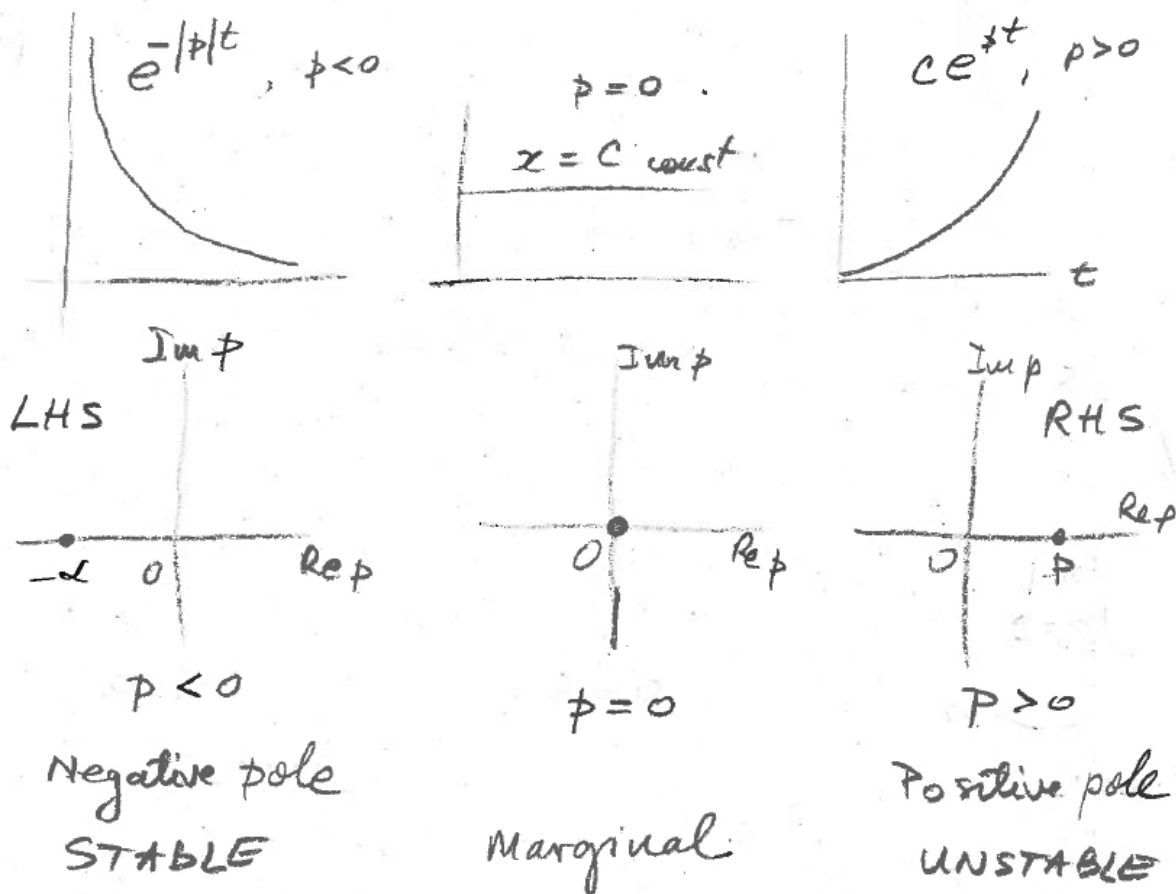 e^{-|p|t}, p<0
p=0.
x = C const.
ce^{pt}, p>0
t
Im p
LHS
-α 0 Re p
p<0
Negative pole
STABLE
Im p
0 Re p
p=0
Marginal
Im p
RHS
Re p
0 p
P>0
Positive pole
UNSTABLE